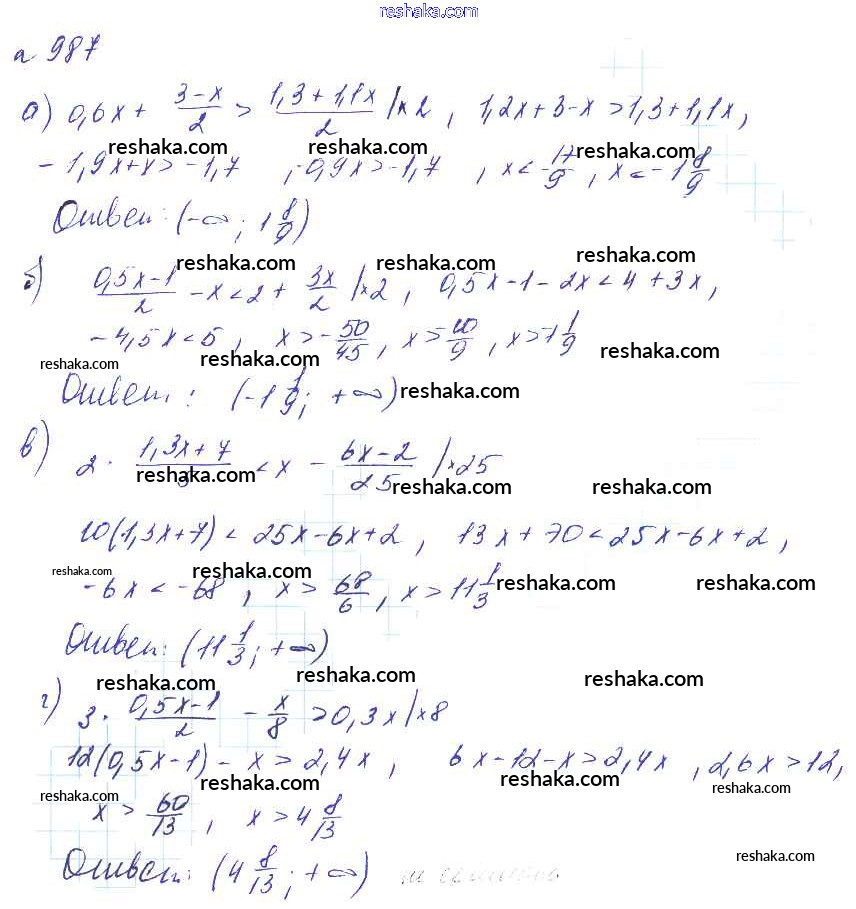 reshaka.com
n 987
а) 0,6x + \frac{3-x}{2} > \frac{1,3+1,1x}{2} |×2, 1,2x+3-x>1,3+1,1x,
reshaka.com reshaka.com reshaka.com
-1,9x+x>-1,7, -0,9x>-1,7, x<\frac{17}{9}, x<-1\frac{8}{9}
Ответ: (-∞; 1\frac{8}{9}) reshaka.com
reshaka.com reshaka.com reshaka.com
б) \frac{0,5x-1}{2} - x < 2 + \frac{3x}{2} |×2, 0,5x-1-2x<4+3x,
-4,5x<5, x>-\frac{50}{45}, x>-\frac{10}{9}, x>-1\frac{1}{9}
reshaka.com reshaka.com reshaka.com reshaka.com
Ответ: (-1\frac{1}{9}; +∞) reshaka.com
в) 2·\frac{1,3x+7}{5} < x - \frac{6x-2}{25} |×25
reshaka.com reshaka.com reshaka.com
10(1,3x+7) < 25x-6x+2, 13x+70<25x-6x+2,
reshaka.com reshaka.com reshaka.com reshaka.com
-6x < -68, x > \frac{68}{6}, x > 11\frac{1}{3}
Ответ: (11\frac{1}{3}; +∞)
reshaka.com reshaka.com reshaka.com
г) 3·\frac{0,5x-1}{2} - \frac{x}{8} > 0,3x |×8
12(0,5x-1) - x > 2,4x, 6x-12-x>2,4x, 2,6x>12,
reshaka.com reshaka.com reshaka.com reshaka.com
x > \frac{60}{13}, x > 4\frac{8}{13}
Ответ: (4\frac{8}{13}; +∞)
reshaka.com